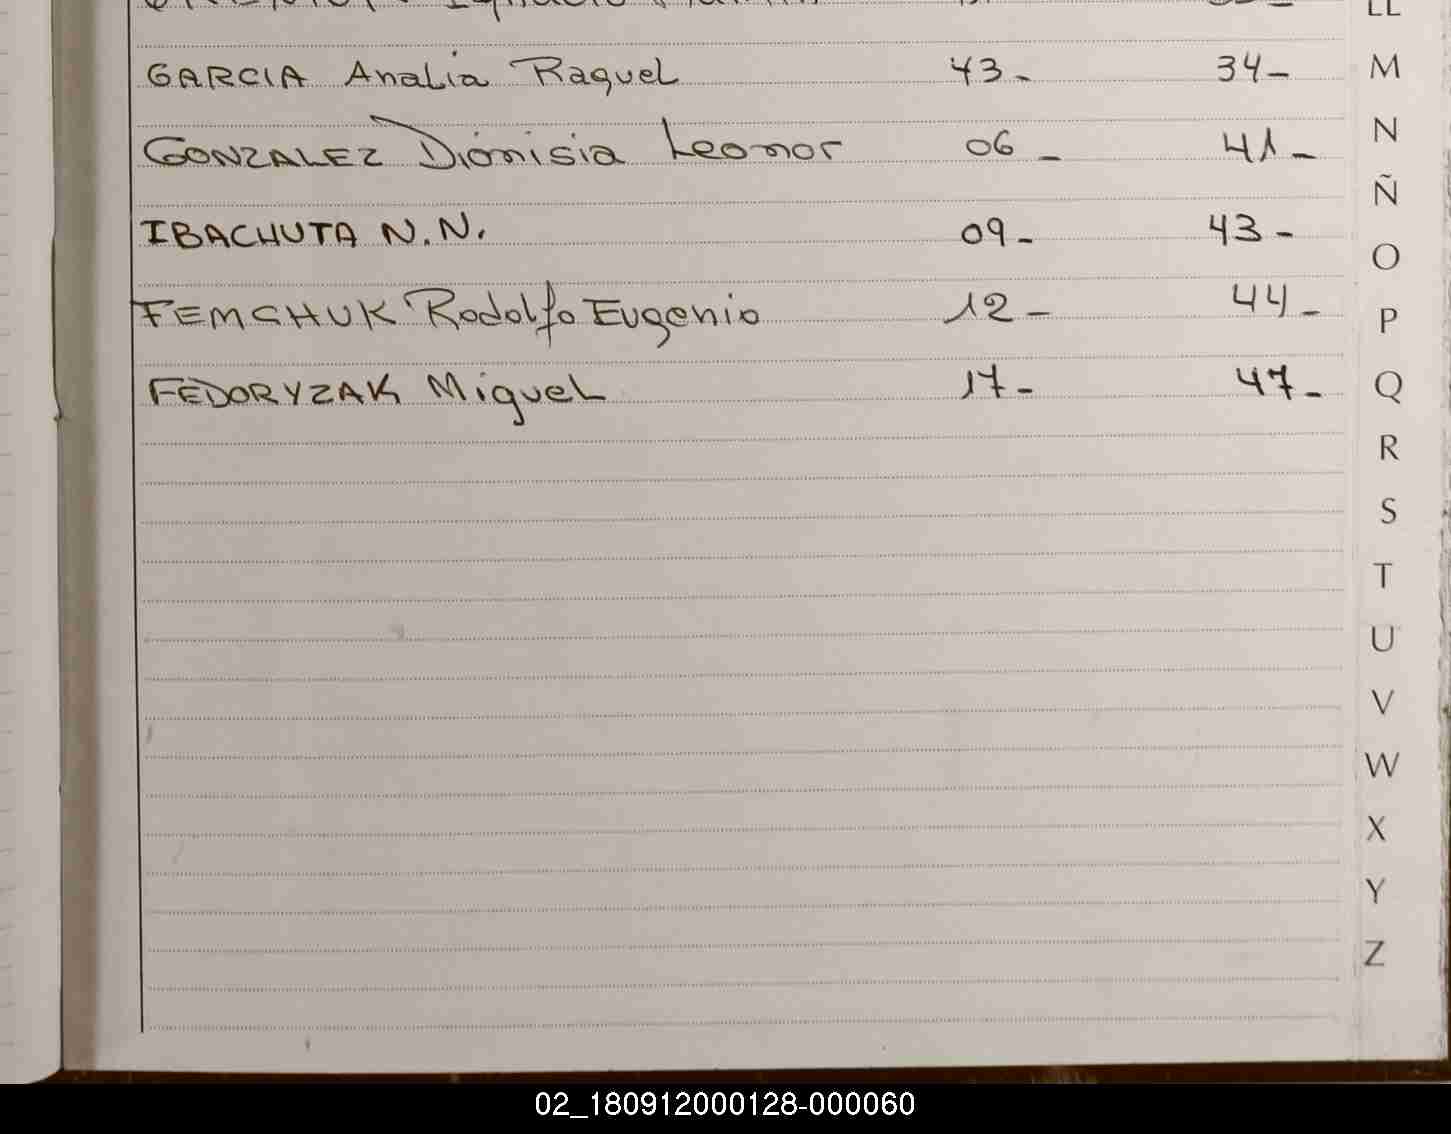 LL
GARCIA Analia Raquel 43- 34- M
N
GONZALEZ Dionisia Leonor 06- 41-
Ñ
IBACHUTA N.N. 09- 43-
O
FEMCHUK Rodolfo Eugenio 12- 44-
P
FEDORYZAK Miguel 17- 47- Q
R
S
T
U
V
W
X
Y
Z
02_180912000128-000060